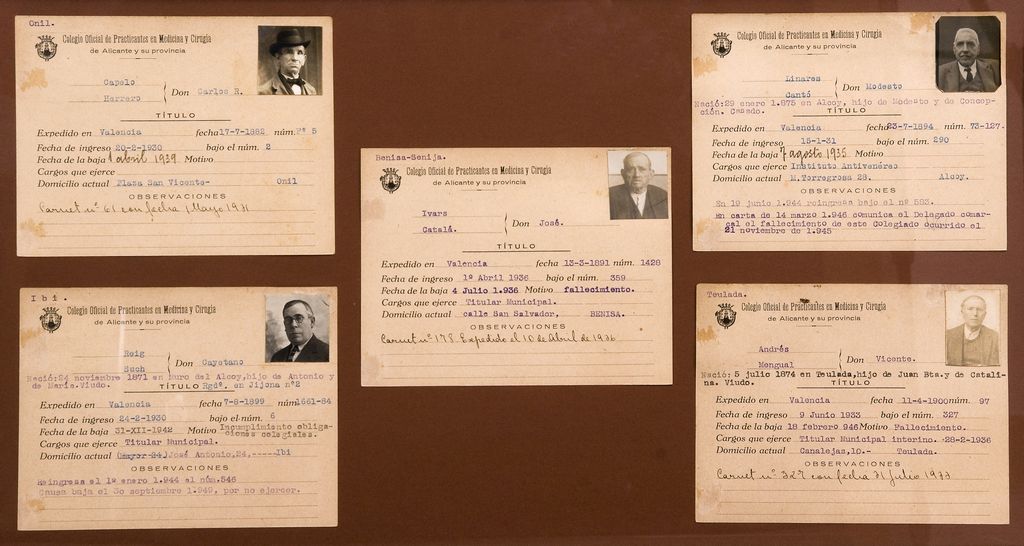 Onil.
Colegio Oficial de Practicantes en Medicina y Cirugía
de Alicante y su provincia
Capelo
Herrero
Don Carlos R.
TÍTULO
Expedido en Valencia fecha 17-7-1882 núm. Fº 5
Fecha de ingreso 20-2-1930 bajo el núm. 2
Fecha de la baja 1 abril 1939 Motivo
Cargos que ejerce
Domicilio actual Plaza San Vicente- Onil
OBSERVACIONES
Carnet nº 61 con fecha 1 Mayo 1931
Ibi.
Colegio Oficial de Practicantes en Medicina y Cirugía
de Alicante y su provincia
Reig
Such
Don Cayetano
Nació:24 noviembre 1871 en Muro del Alcoy,hijo de Antonio y
de María.Viudo.
TÍTULO Rgdº. en Jijona nº2
Expedido en Valencia fecha 7-8-1899 núm 1661-84
Fecha de ingreso 24-2-1930 bajo el núm. 6
Fecha de la baja 31-XII-1942 Motivo Incumplimiento obliga-
ciones colegiales.
Cargos que ejerce Titular Municipal.
Domicilio actual (mayor 24) José Antonio,24,-----Ibi
OBSERVACIONES
Reingresa el 1º enero 1.944 al núm.546
Causa baja el 30 septiembre 1.949, por no ejercer.
Benisa-Senija.
Colegio Oficial de Practicantes en Medicina y Cirugía
de Alicante y su provincia
Ivars
Catalá.
Don José.
TÍTULO
Expedido en Valencia fecha 13-3-1891 núm. 1428
Fecha de ingreso 1º Abril 1936 bajo el núm. 359
Fecha de la baja 4 Julio 1.936 Motivo fallecimiento.
Cargos que ejerce Titular Municipal.
Domicilio actual calle San Salvador, BENISA.
OBSERVACIONES
Carnet nº 178 Expedido el 10 de Abril de 1936
Colegio Oficial de Practicantes en Medicina y Cirugía
de Alicante y su provincia
Linares
Cantó
Don Modesto
Nació:29 enero 1.875 en Alcoy, hijo de Modesto y de Concep-
ción. Casado.
TÍTULO
Expedido en Valencia fecha 23-7-1894 núm. 73-127.
Fecha de ingreso 15-1-31 bajo el núm. 290
Fecha de la baja 7 agosto 1935 Motivo
Cargos que ejerce Instituto Antivenéreo
Domicilio actual M.Torregrosa 28. Alcoy.
OBSERVACIONES
En 19 junio 1.944 reingresa bajo el nº 583.
En carta de 14 marzo 1.946 comunica el Delegado comar-
cal el fallecimiento de este Colegiado ocurrido el
21 noviembre de 1.945
Teulada.
Colegio Oficial de Practicantes en Medicina y Cirugía
de Alicante y su provincia
Andrés
Mengual
Don Vicente.
Nació: 5 julio 1874 en Teulada,hijo de Juan Bta.y de Catali-
na. Viudo.
TÍTULO
Expedido en Valencia fecha 11-4-1900 núm. 97
Fecha de ingreso 9 Junio 1933 bajo el núm. 327
Fecha de la baja 18 febrero 946 Motivo Fallecimiento.
Cargos que ejerce Titular Municipal interino. -28-2-1936
Domicilio actual Canalejas,10.- Teulada.
OBSERVACIONES
Carnet nº 327 con fecha 31 Julio 1933